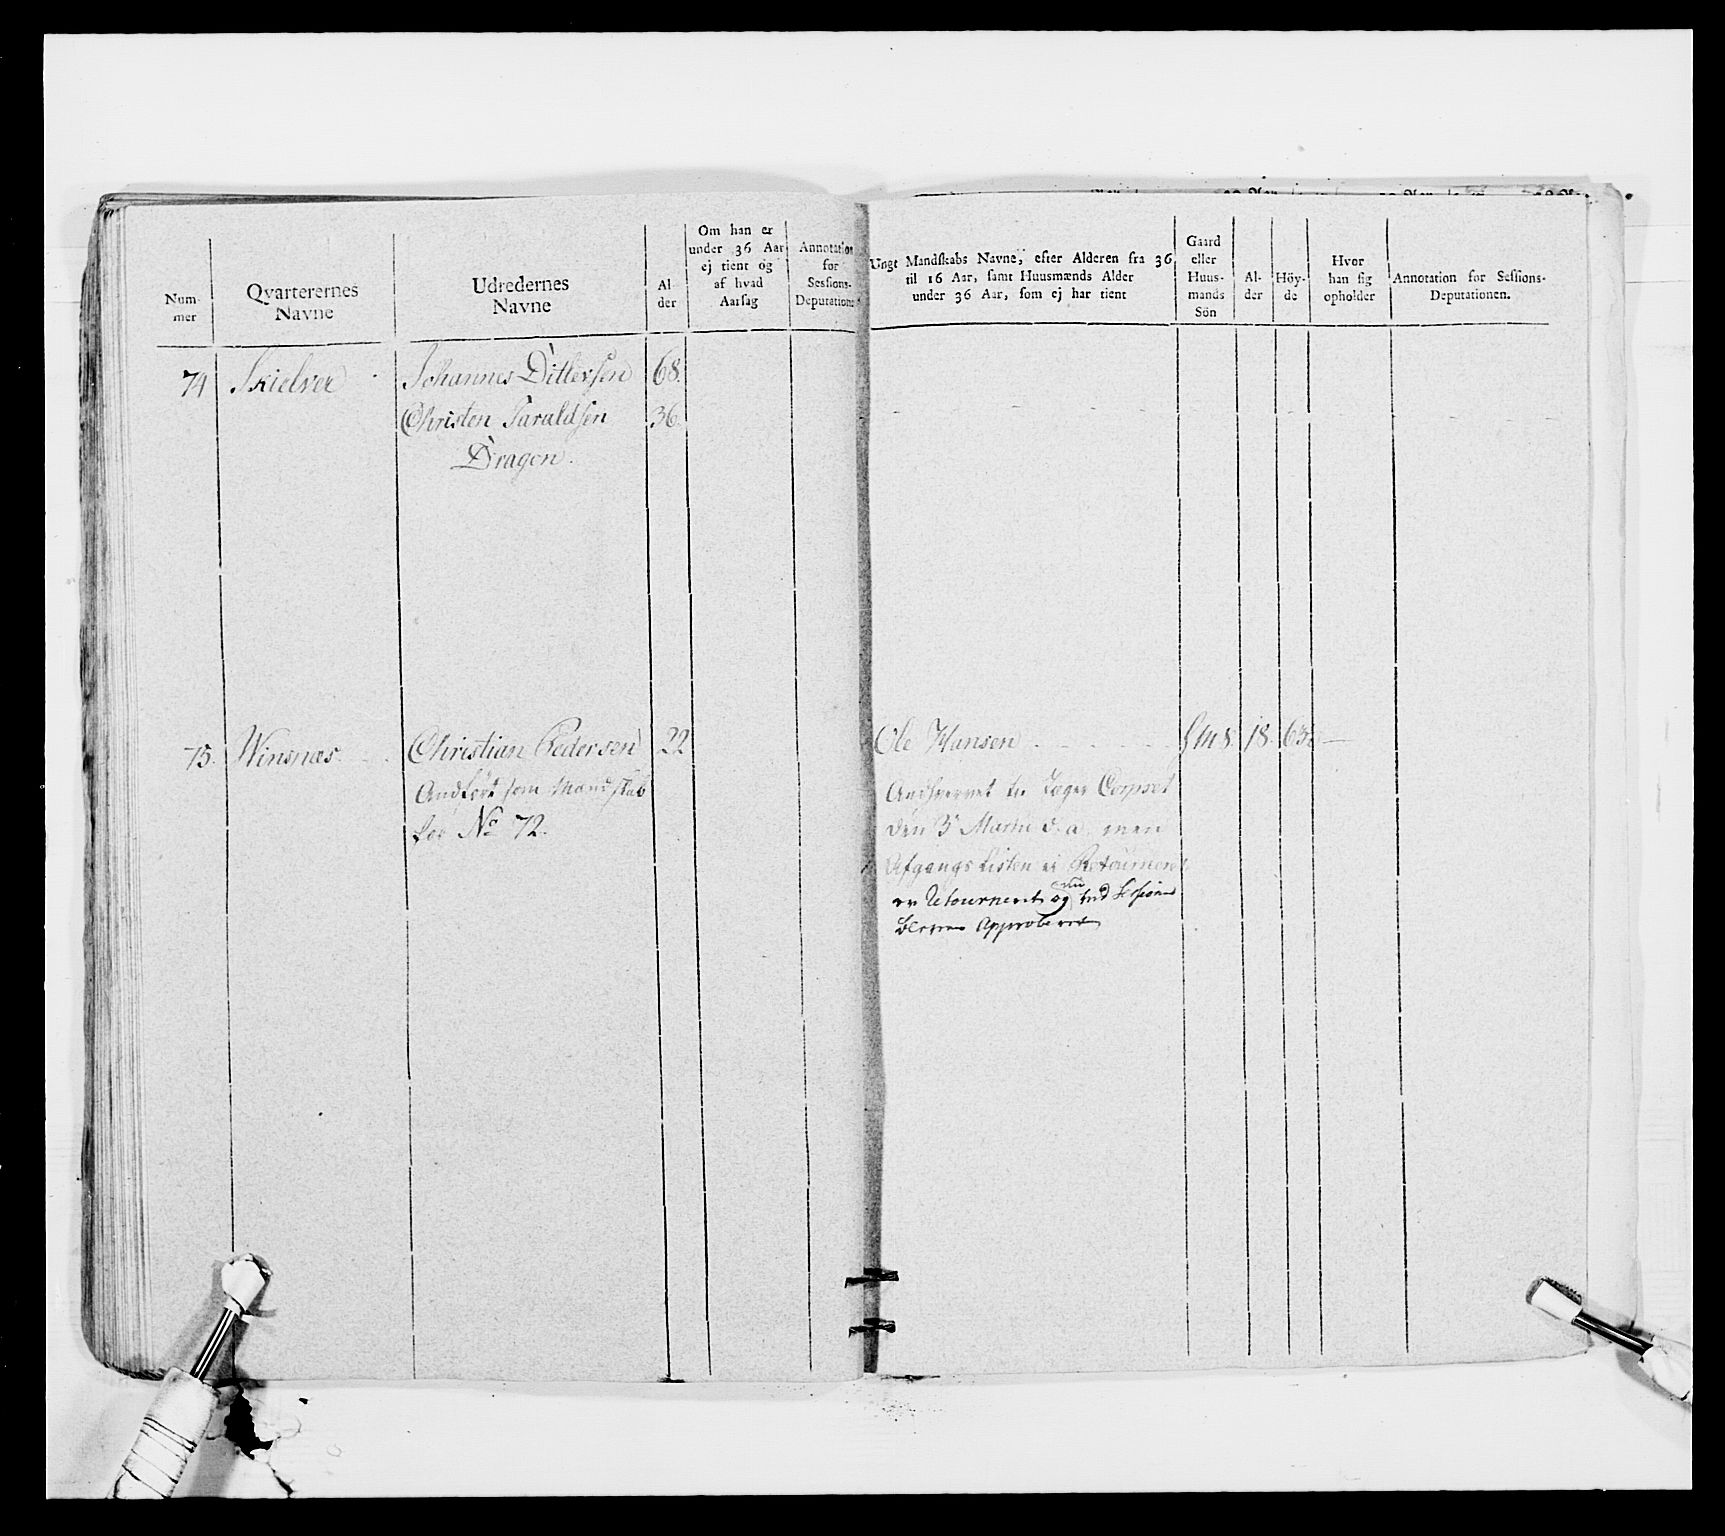 Num-
mer
Qvarterernes
Navne
Udredernes
Navne
Al-
der
Om han er
under 36 Aar
ej tient og
af hvad
Aarsag
Annotation
for
Sessions-
Deputation
Ungt Mandskabs Navne, efter Alderen fra 36
til 16 Aar, samt Huusmænds Alder
under 36 Aar, som ej har tient
Gaard
eller
Huus-
mands
Sön
Al-
der
Höy-
de
Hvor
han sig
opholder
Annotation for Sessions-
Deputationen.
74 Skielver Johannes Ditlevsen 68.
Christen Taraldsen 36.
Dragon.
75. Winsnæs Christian Pedersen 22 Ole Hansen 18.
Andført som Mandskab
No 72.
til Jæger Corpset
den 3 Martii d. a. men
Afgangs Listen ei Retourneret
er Retourneret og nu ved Sessionen
Approberet